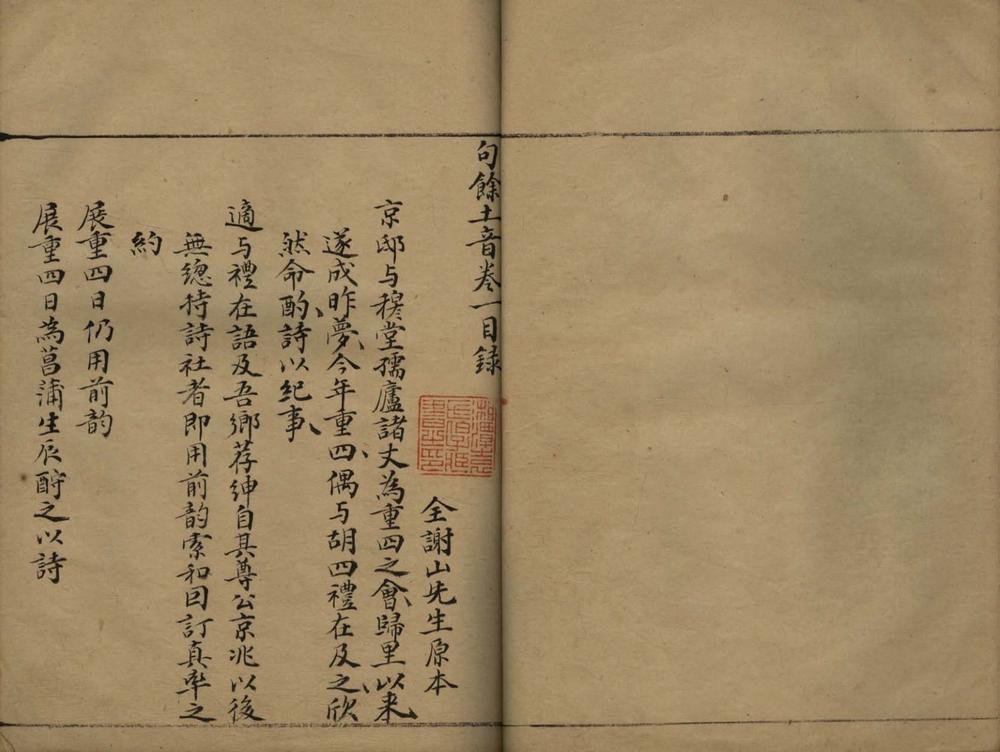 句餘土音卷一目錄
全謝山先生原本
京邸与穆堂孺廬諸丈為重四之會歸里以来
遂成昨夢今年重四偶与胡四禮在及之欣
然命酌詩以紀事
適与禮在語及吾鄉荐紳自其尊公京兆以後
無總持詩社者即用前韵索和因訂真率之
約
展重四日仍用前韵
展重四日為菖蒲生辰酹之以詩